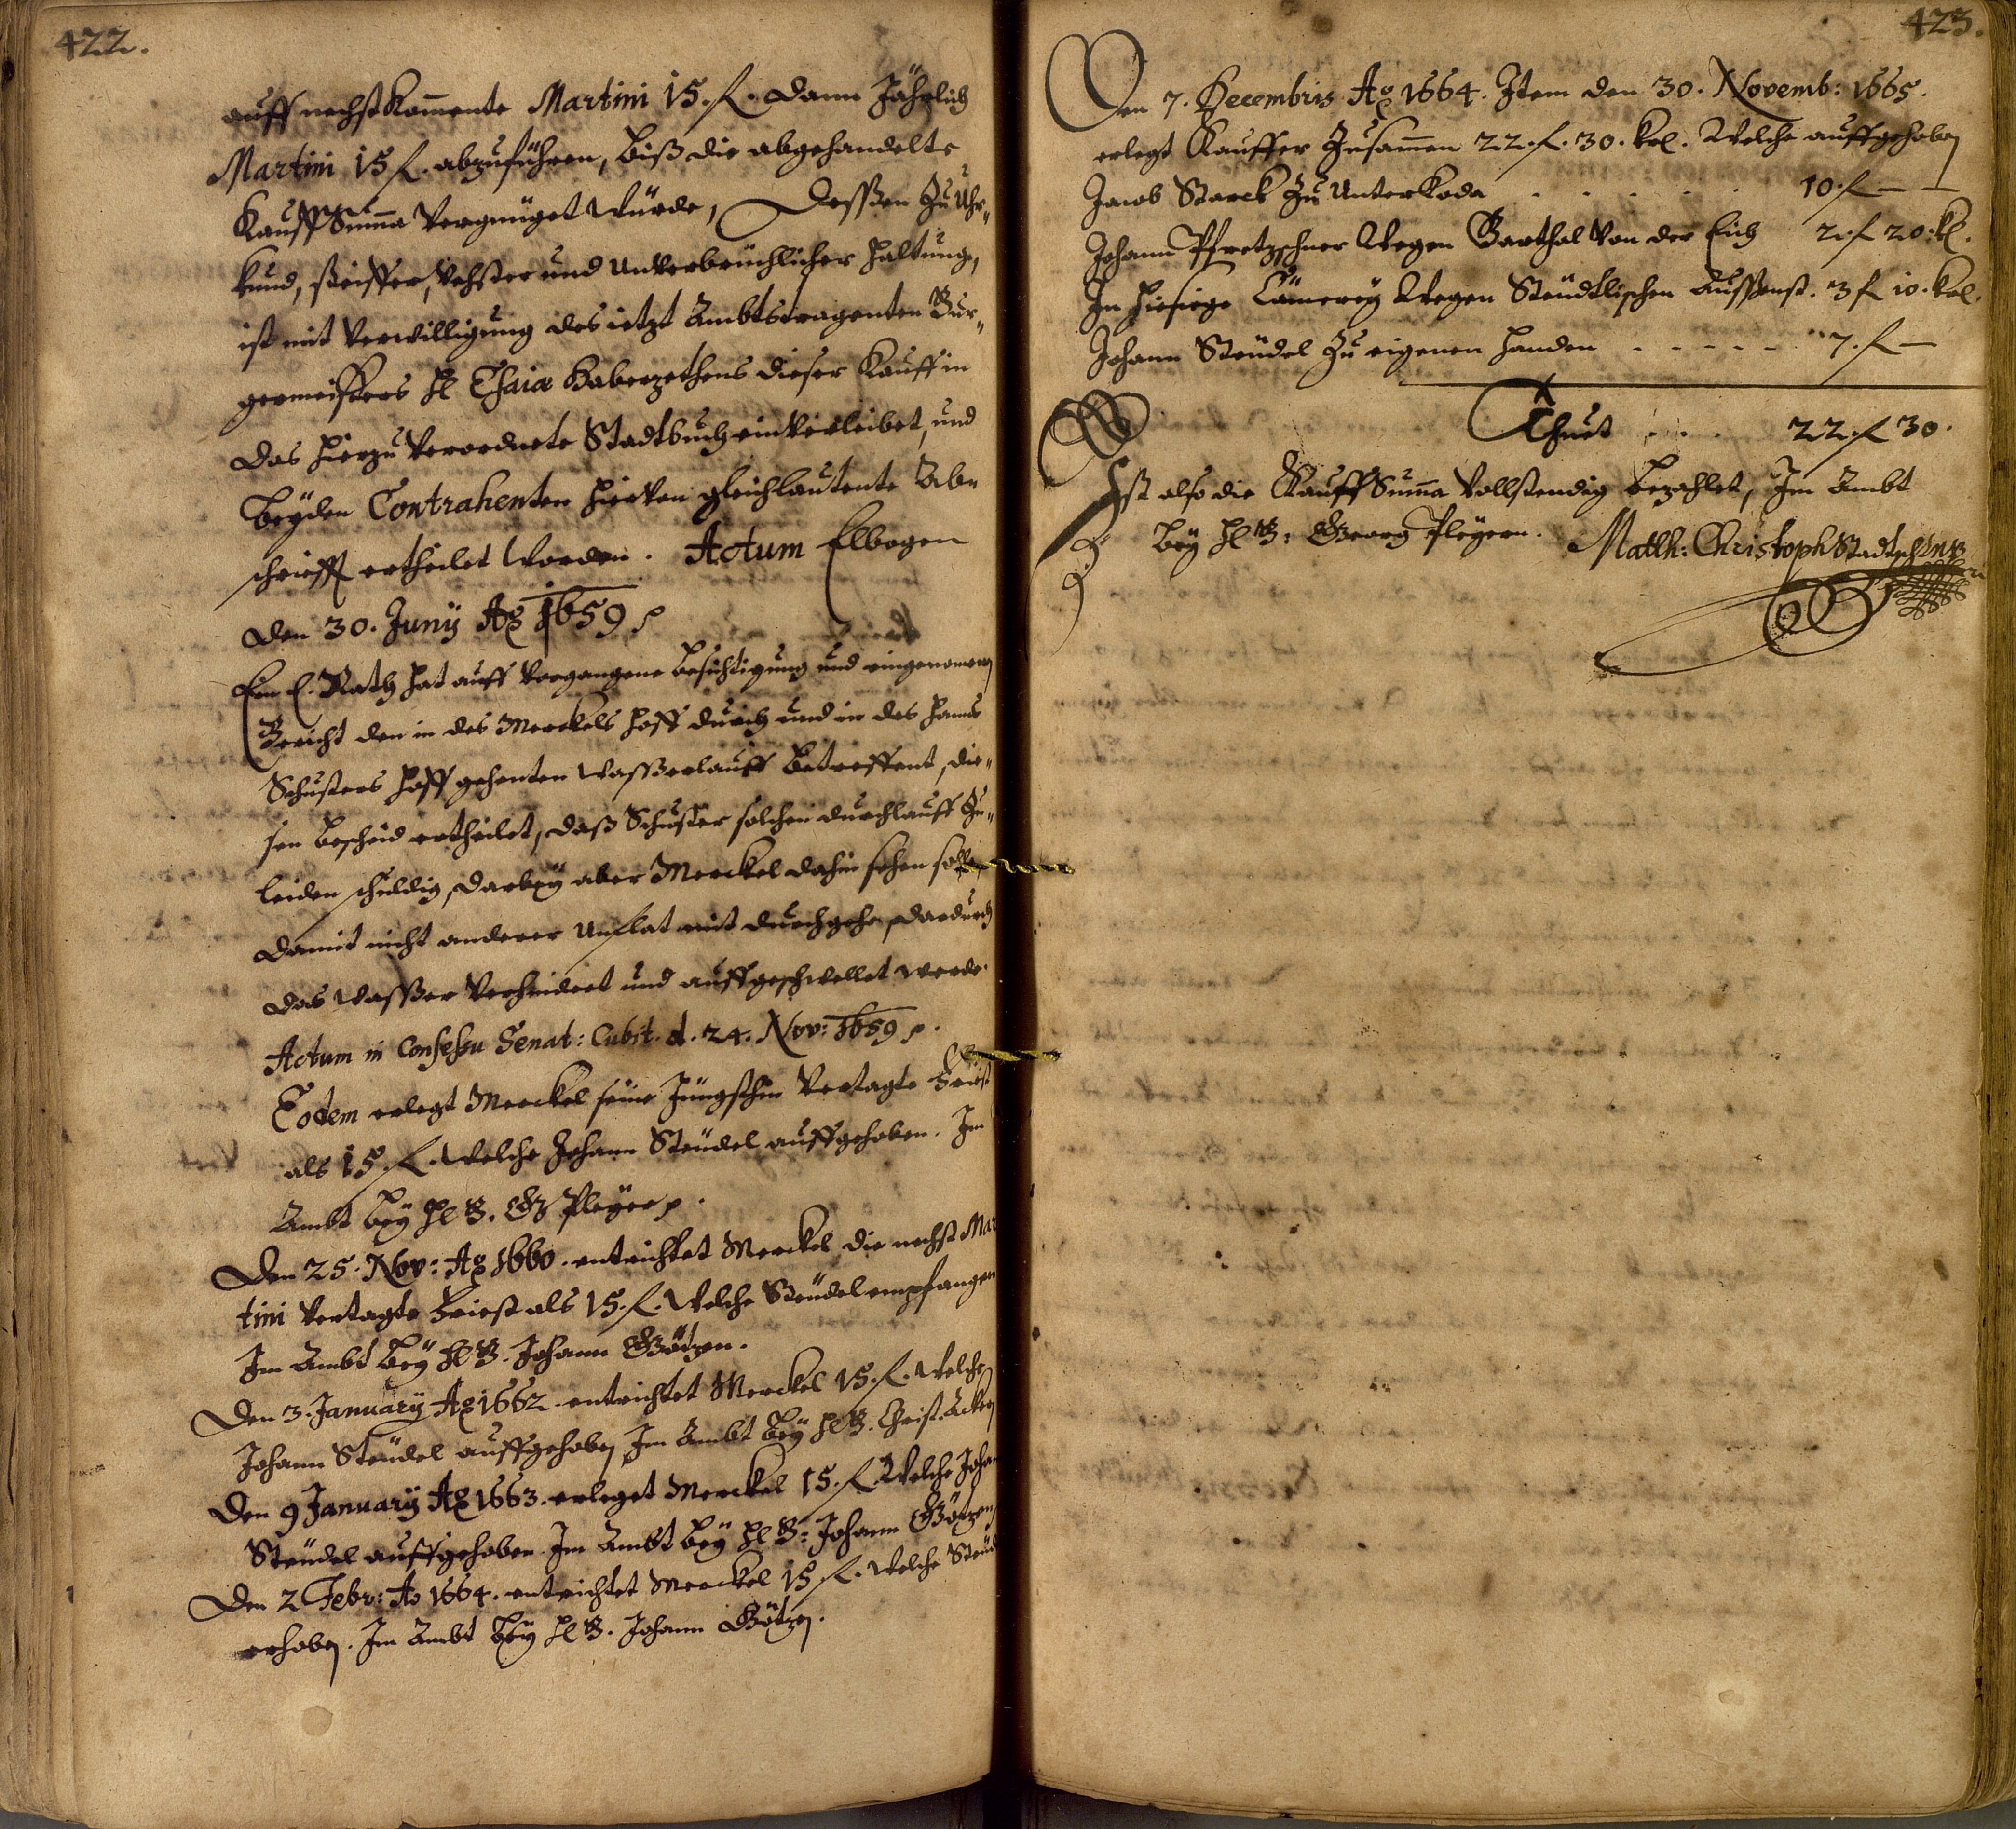 422.
auff nechst Kom̄ente Martini 15. f. dann Jährlich
Martini 15 f. abzuführen, biß die abgehandelte
Kauff Sum̄a Vergnüget Würde, Dessen Zu Uhr¬
kund, steiffer, Vehster und Unverbrüchlicher haltung,
ist mit Verwilligung des ietzt Ambtstragenten Bur¬
germeisters H Esaiæ Haberzethens dieser Kauff in
das hierzu Verordnete Stadtbuch einverleibet, und
beyden Contrahenten hiervon gleichlautente Ab¬
schrifft ertheilet Worden. Actum Elbogen
den 30. Juny Aō 1659 p
Ein E. Rath hat auff Vorgangene besichtigung und eingenomenen
Bericht den in des Merckels hoff durch und in des Hanns
Schusters hoff gehenten Wasserlauff betreffent, die¬
sen bescheid ertheilet, daß Schuster solchen durchlauff Zu¬
leiden schuldig, darbey aber Merckel dahin sehen solle
damit nicht anderer Unflat mit durchgehe, dardurch
das Wasser Verhindert und auffgeschwellet werde.
Actum in Consessu Senat: Cubit. d. 24. Nov: 1659 p.
Eodem erlegt Merckel seine Jüngsthin Vertagte Friest
als 15. f. Welche Johann Steudel auffgehoben. Im
Ambt bey H B. G Pleyer p.
Den 25. Nov: Aō 1660. entrichtet Merckel die nechst Mar
tini Vertagte Friest als 15. f. Welche Steudel empfangen
Im Ambt bey H B. Johann Götzen.
Den 3. January Aō 1662. entrichtet Merckel 15. f. Welche
Johann Steudel auffgehoben Im Ambt bey H B. Christ.
Den 9 January Aō 1663. erleget Merckel 15. f. Welche Joha
Steudel auffgehoben Im Ambt bey H B: Johann Götzen
Den 2 Febr: Ao 1664. entrichtet Merckel 15 f. Welche Steud
erhoben. Im Ambt bey H B. Johann Götzen.
423.
Den 7. Decembris Aō 1664. Item den 30. Novemb: 1665.
erlegt Kauffer Zusam̄en 22. f. 30. kr. Welche auffgehoben
Jacob Starck Zu Unterkoda . . . . . 10. f —
Johann Pfretzschner Wegen Barthol Von der Eich 2. f 20. k.
In hiesige Cäm̄erey Wegen Steudtlischen Aussenst. 3 f 10. kr.
Johann Steudel Zu eigenen handen - - - - - 7. f —
Thuet . . . 22. f 30.
Ist also die Kauff Sum̄a Vollstendig bezahlet, Im Ambt
bey H B: Georg Pleyern. Matth: Christoph Stadtsch